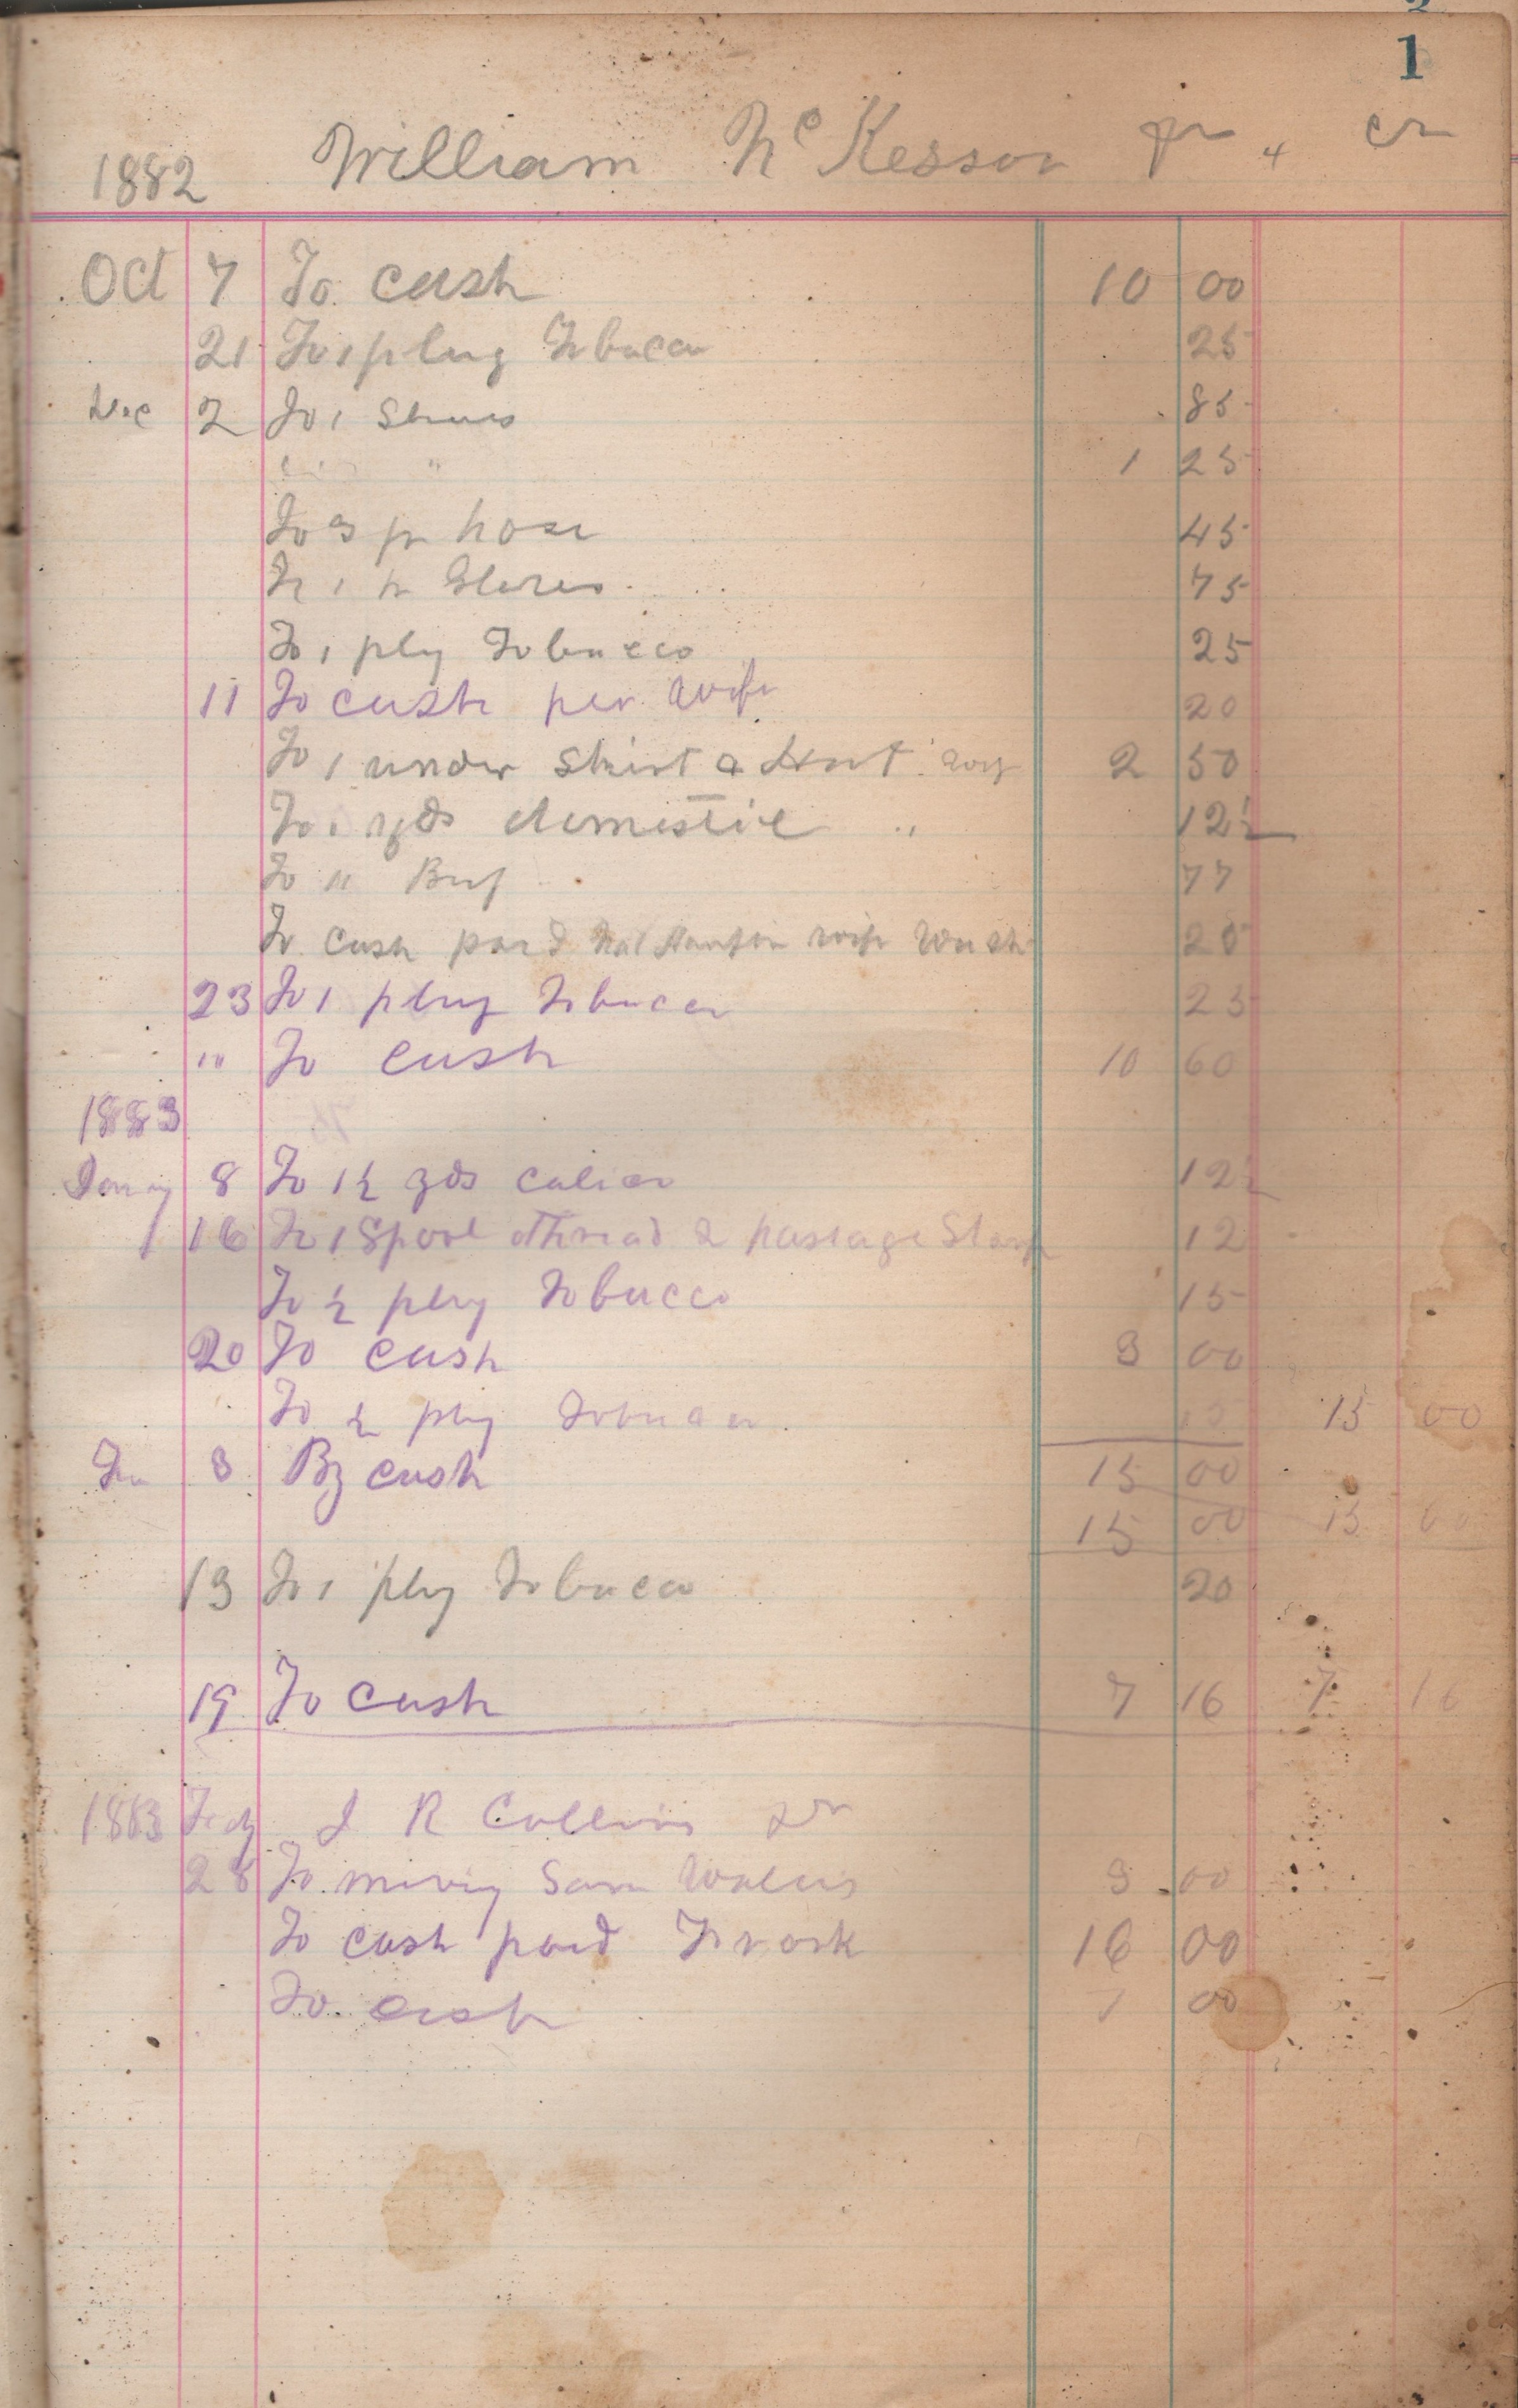 1
1882 William McKesson Dr & Cr
Oct 7 To cash 10 00
21 To 1 plug Tobacco 25
Dec 2 To 1 Shoes 85
" 1 25
To 3 pr hose 45
To 1 pr Gloves 75
To 1 plug Tobacco 25
11 To cash per Wife 20
To 1 under Shirt & 2 50
To 1 yds domestic " 12½
To " Beef 77
To Cash paid wife Wash
23 To 1 plug Tobacco 25
" To cash 10 60
1883
8 To 1½ yds calico 12½
16 To 1 Spool Thread & passage Stamp 12
To ½ plug Tobacco 15
20 To cash 3 00
To ½ plug Tobacco 15 15 00
3 By cash 15 00
15 00 15 00
13 To 1 plug Tobacco 20
19 To cash 7 16 7 16
1883 J R Collins Dr
28 To moving Sam 3 00
To cash paid 16 00
To cash 00